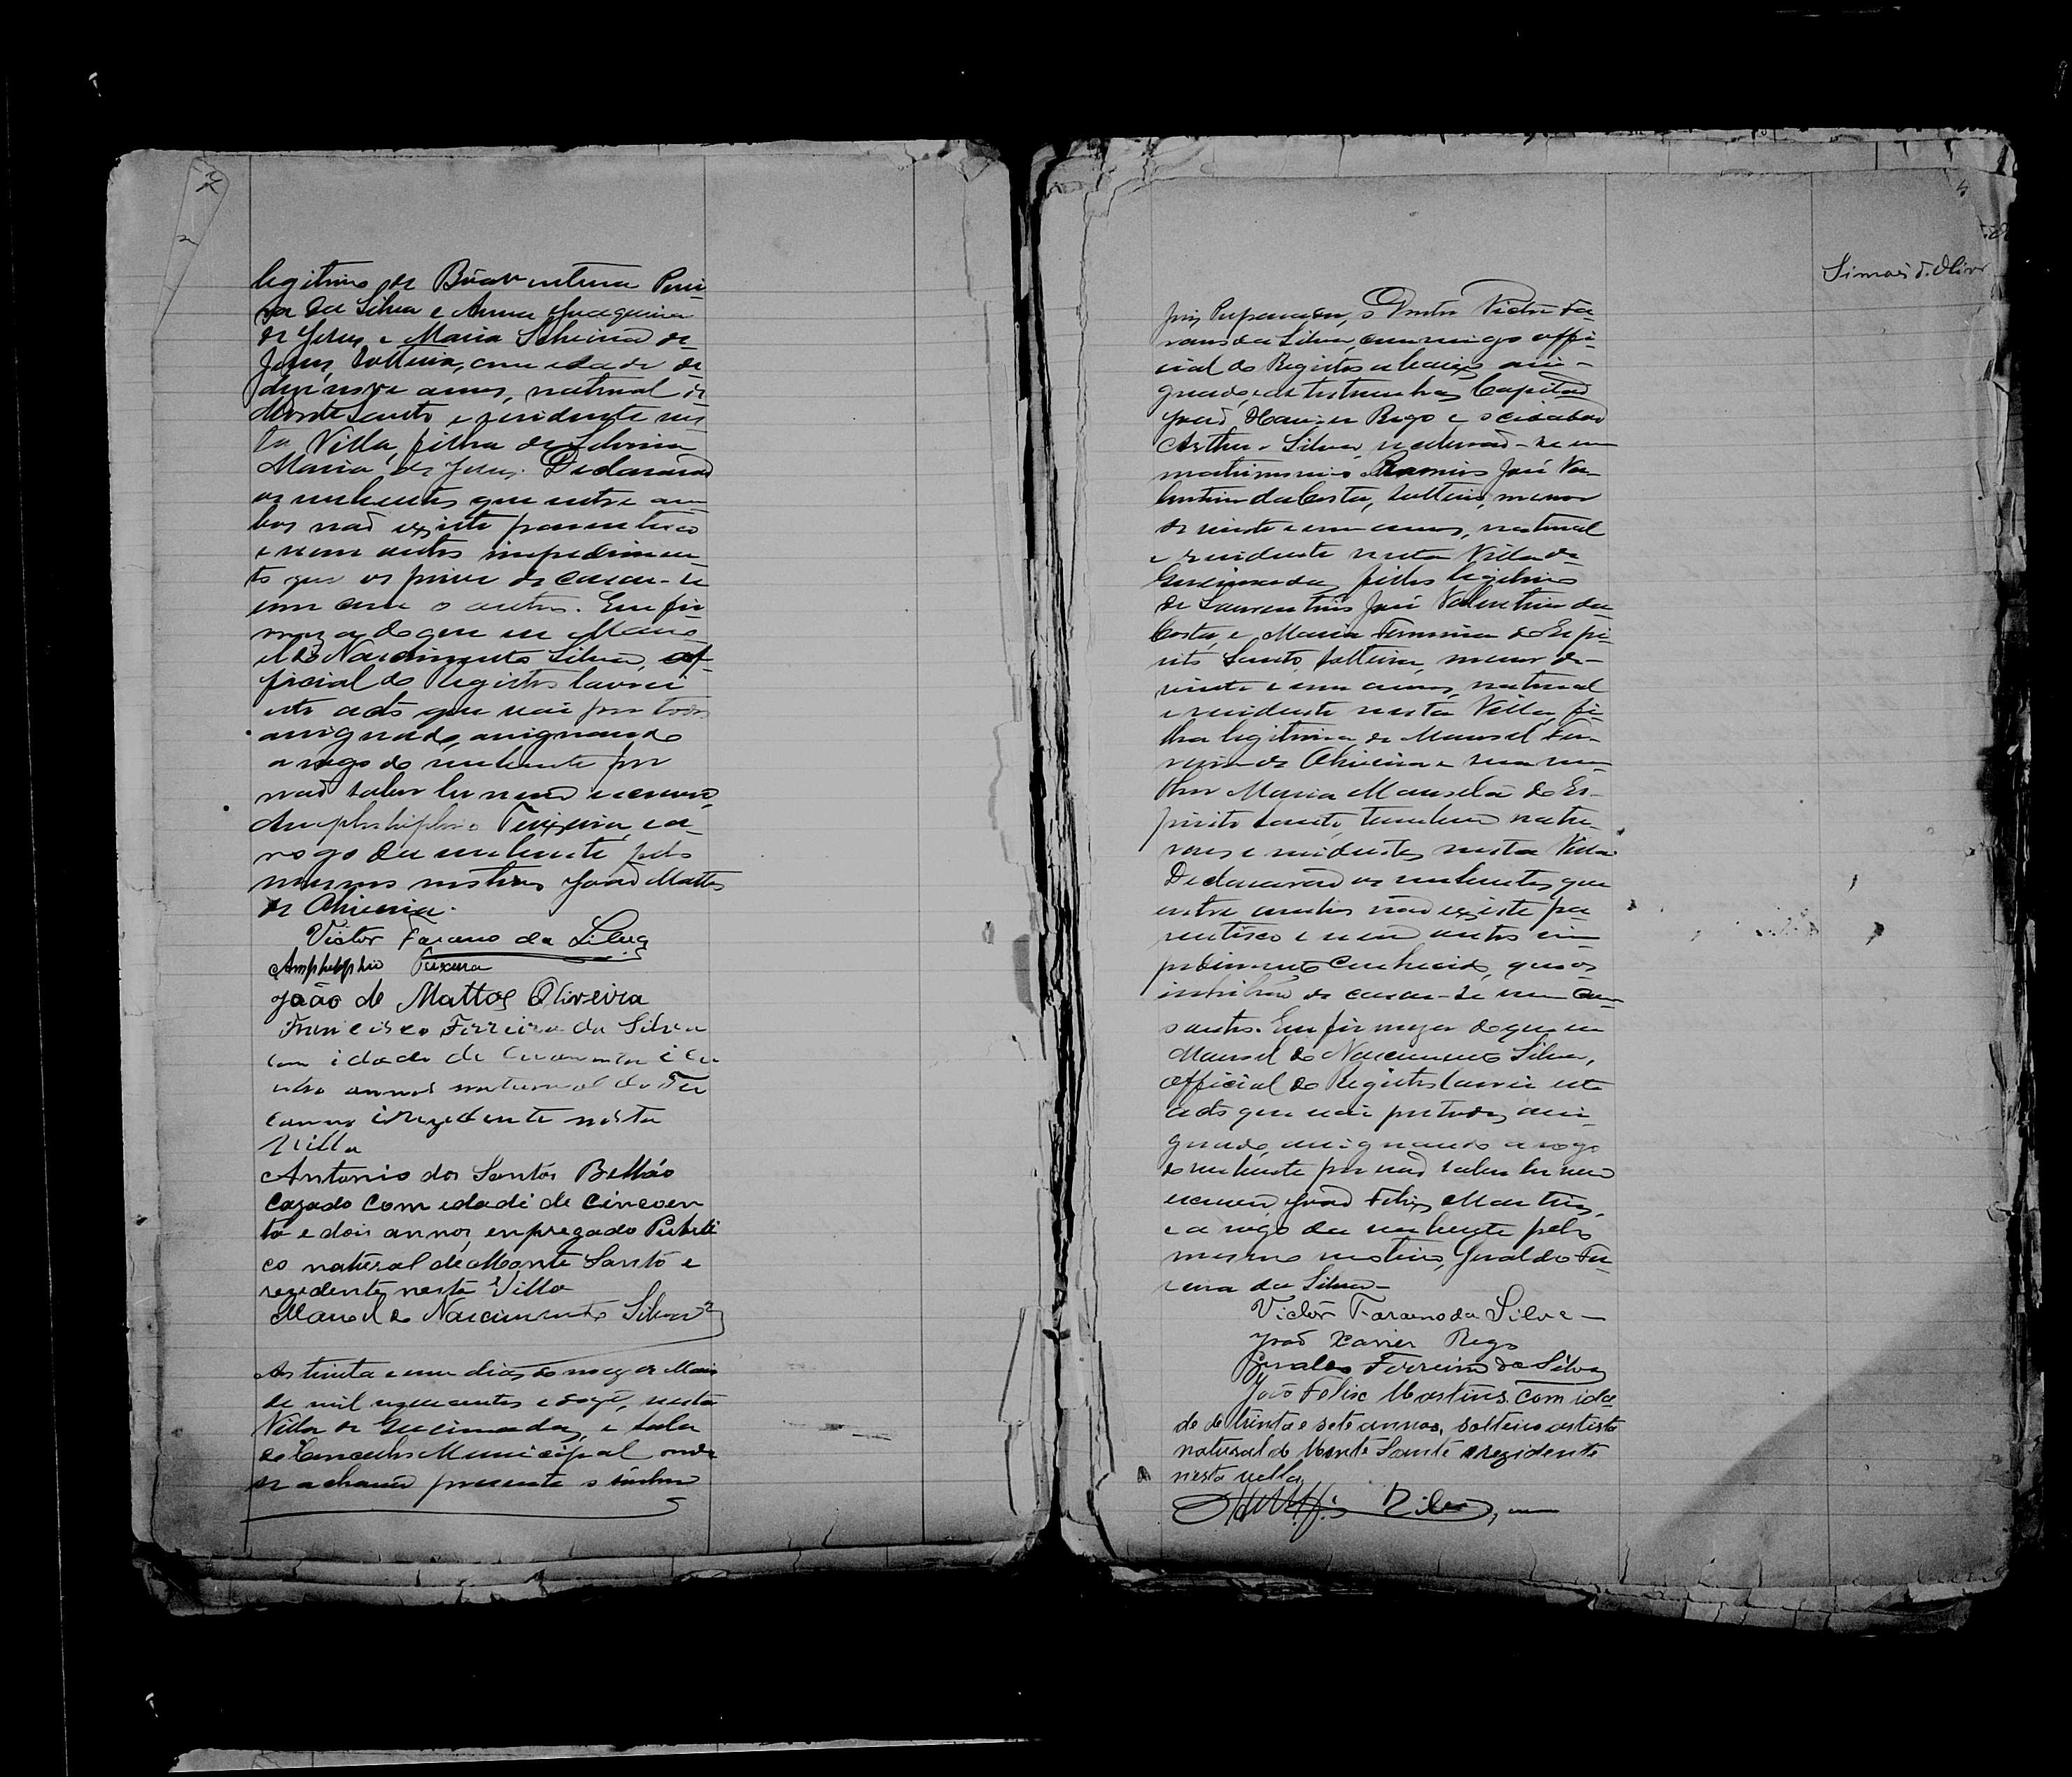 legitimo de Bôaventura Perei-
ra da Silva e Anna Joaquina
de Jesus, e Maria Silvina de
Jesus, solteira, com edade de
desenove annos, natural de
Monte Santo e residente nes
ta Villa, filha de Silvina
Maria de Jesus. Declararaõ
os nubentes que entre am
bos naõ existe parentesco
e nem outro impedimen-
to que os prive de casar-se
um com o outro. Em fir
meza do que eu Mano-
el do Nascimento Silva, of-
ficial do registro lavrei
este acto que vai por todos
assignado, assignando
a rogo do nubente por
naõ saber ler nem escrever,
Amphilophio Teixeira, e a
rogo da nubente pelo
mesmo motivo Joaõ Mattos
de Oliveira.
Victor Farano da Silva
Amphilophio Teixeira
João de Mattos Oliveira
Francisco Ferreira da Silva
com idade de
annos natural do Tu
canno i rezidente nesta
Villa
Antonio dos Santos Beltrão
Cazado com edade de cincoen
ta e dois annos, enpregado Publi
co natural de Monte Santo e
rezidente nesta Villa
Manoel do Nascimento Silva
Aos trinta e um dias do mez de Maio
de mil novecentos e doze, nesta
Villa de Queimadas, e sala
do Concelho Municipal onde
se achava presente o senhor
Simões d. Oliv
Juiz Preparador, o Doutor Victor Fa-
rano da Silva, commigo offi-
cial do Registro abaixo assi-
gnado, e as testemunhas Capitaõ
Joaõ Xavier Rego e o cidadaõ
Arthur Silva, receberaõ-se em
matrimonio José Va-
lentim da Costa, solteiro, menor
de vinte e um annos, natural
e residente nesta Villa de
Queimadas, filho legitimo
de Laurentino José Valentim da
Costa, e Maria Firmina do Espi-
rito Santo, solteira, menor de
vinte e um annos, natural
e residente nesta Villa, fi-
lha legitima de Manoel Fer-
reira de Oliveira e sua mu-
lher Maria Manoela do Es-
pirito Santo, tambem natu-
raes e residentes nesta Villa
Declararaõ os nubentes que
entre ambos naõ existe pa-
rentesco e nem outro im-
pedimento conhecido, que os
inhibaõ de casar-se um com
o outro. Em firmeza do que eu
Manoel do Nascimento Silva,
official do Registro lavrei este
acto que vai por todos assi-
gnado, assignando a rogo
do nubente por naõ saber ler nem
escrever, Joaõ Felix Martins,
e a rogo da nubente pelo
mesmo motivo, Geraldo Fer-
reira da Silva-
Victor Farano da Silva-
Joaõ Xavier Rego
Geraldo Ferreira da Silva
João Felix Martins com ida-
de de trinta e sete annos, solteiro artista
natural de Monte Santo e rezidente
nesta villa
Silva